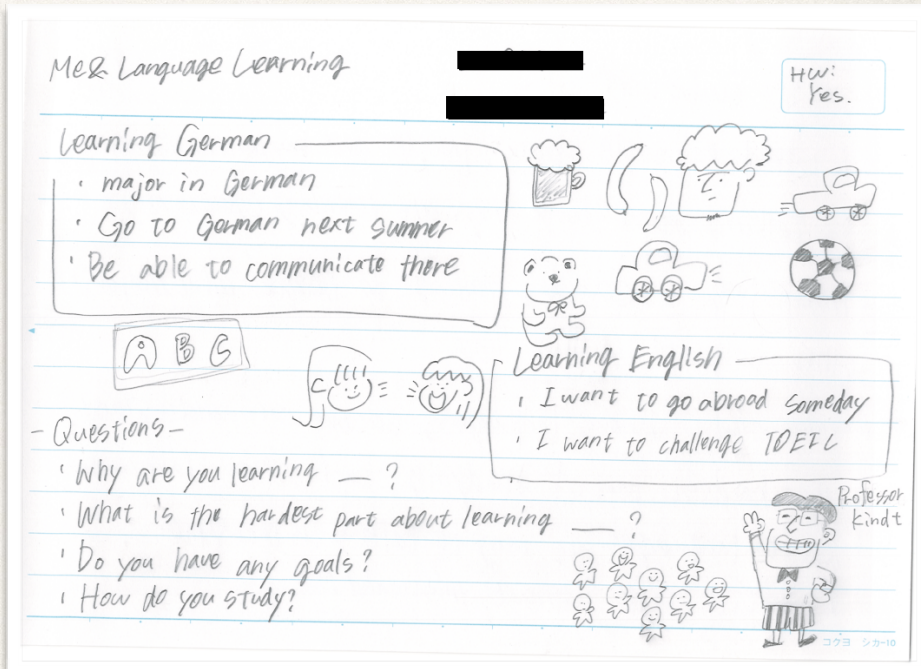 Me & Language Learning
HW:
Yes.
Learning German
・major in German
・Go to German next summer
・Be able to communicate there
A B C
Learning English
・I want to go abroad someday
・I want to challenge TOEIC
- Questions -
・Why are you learning __ ?
・What is the hardest part about learning __ ?
・Do you have any goals?
・How do you study?
Professor
Kindt
コクヨ シカ-10